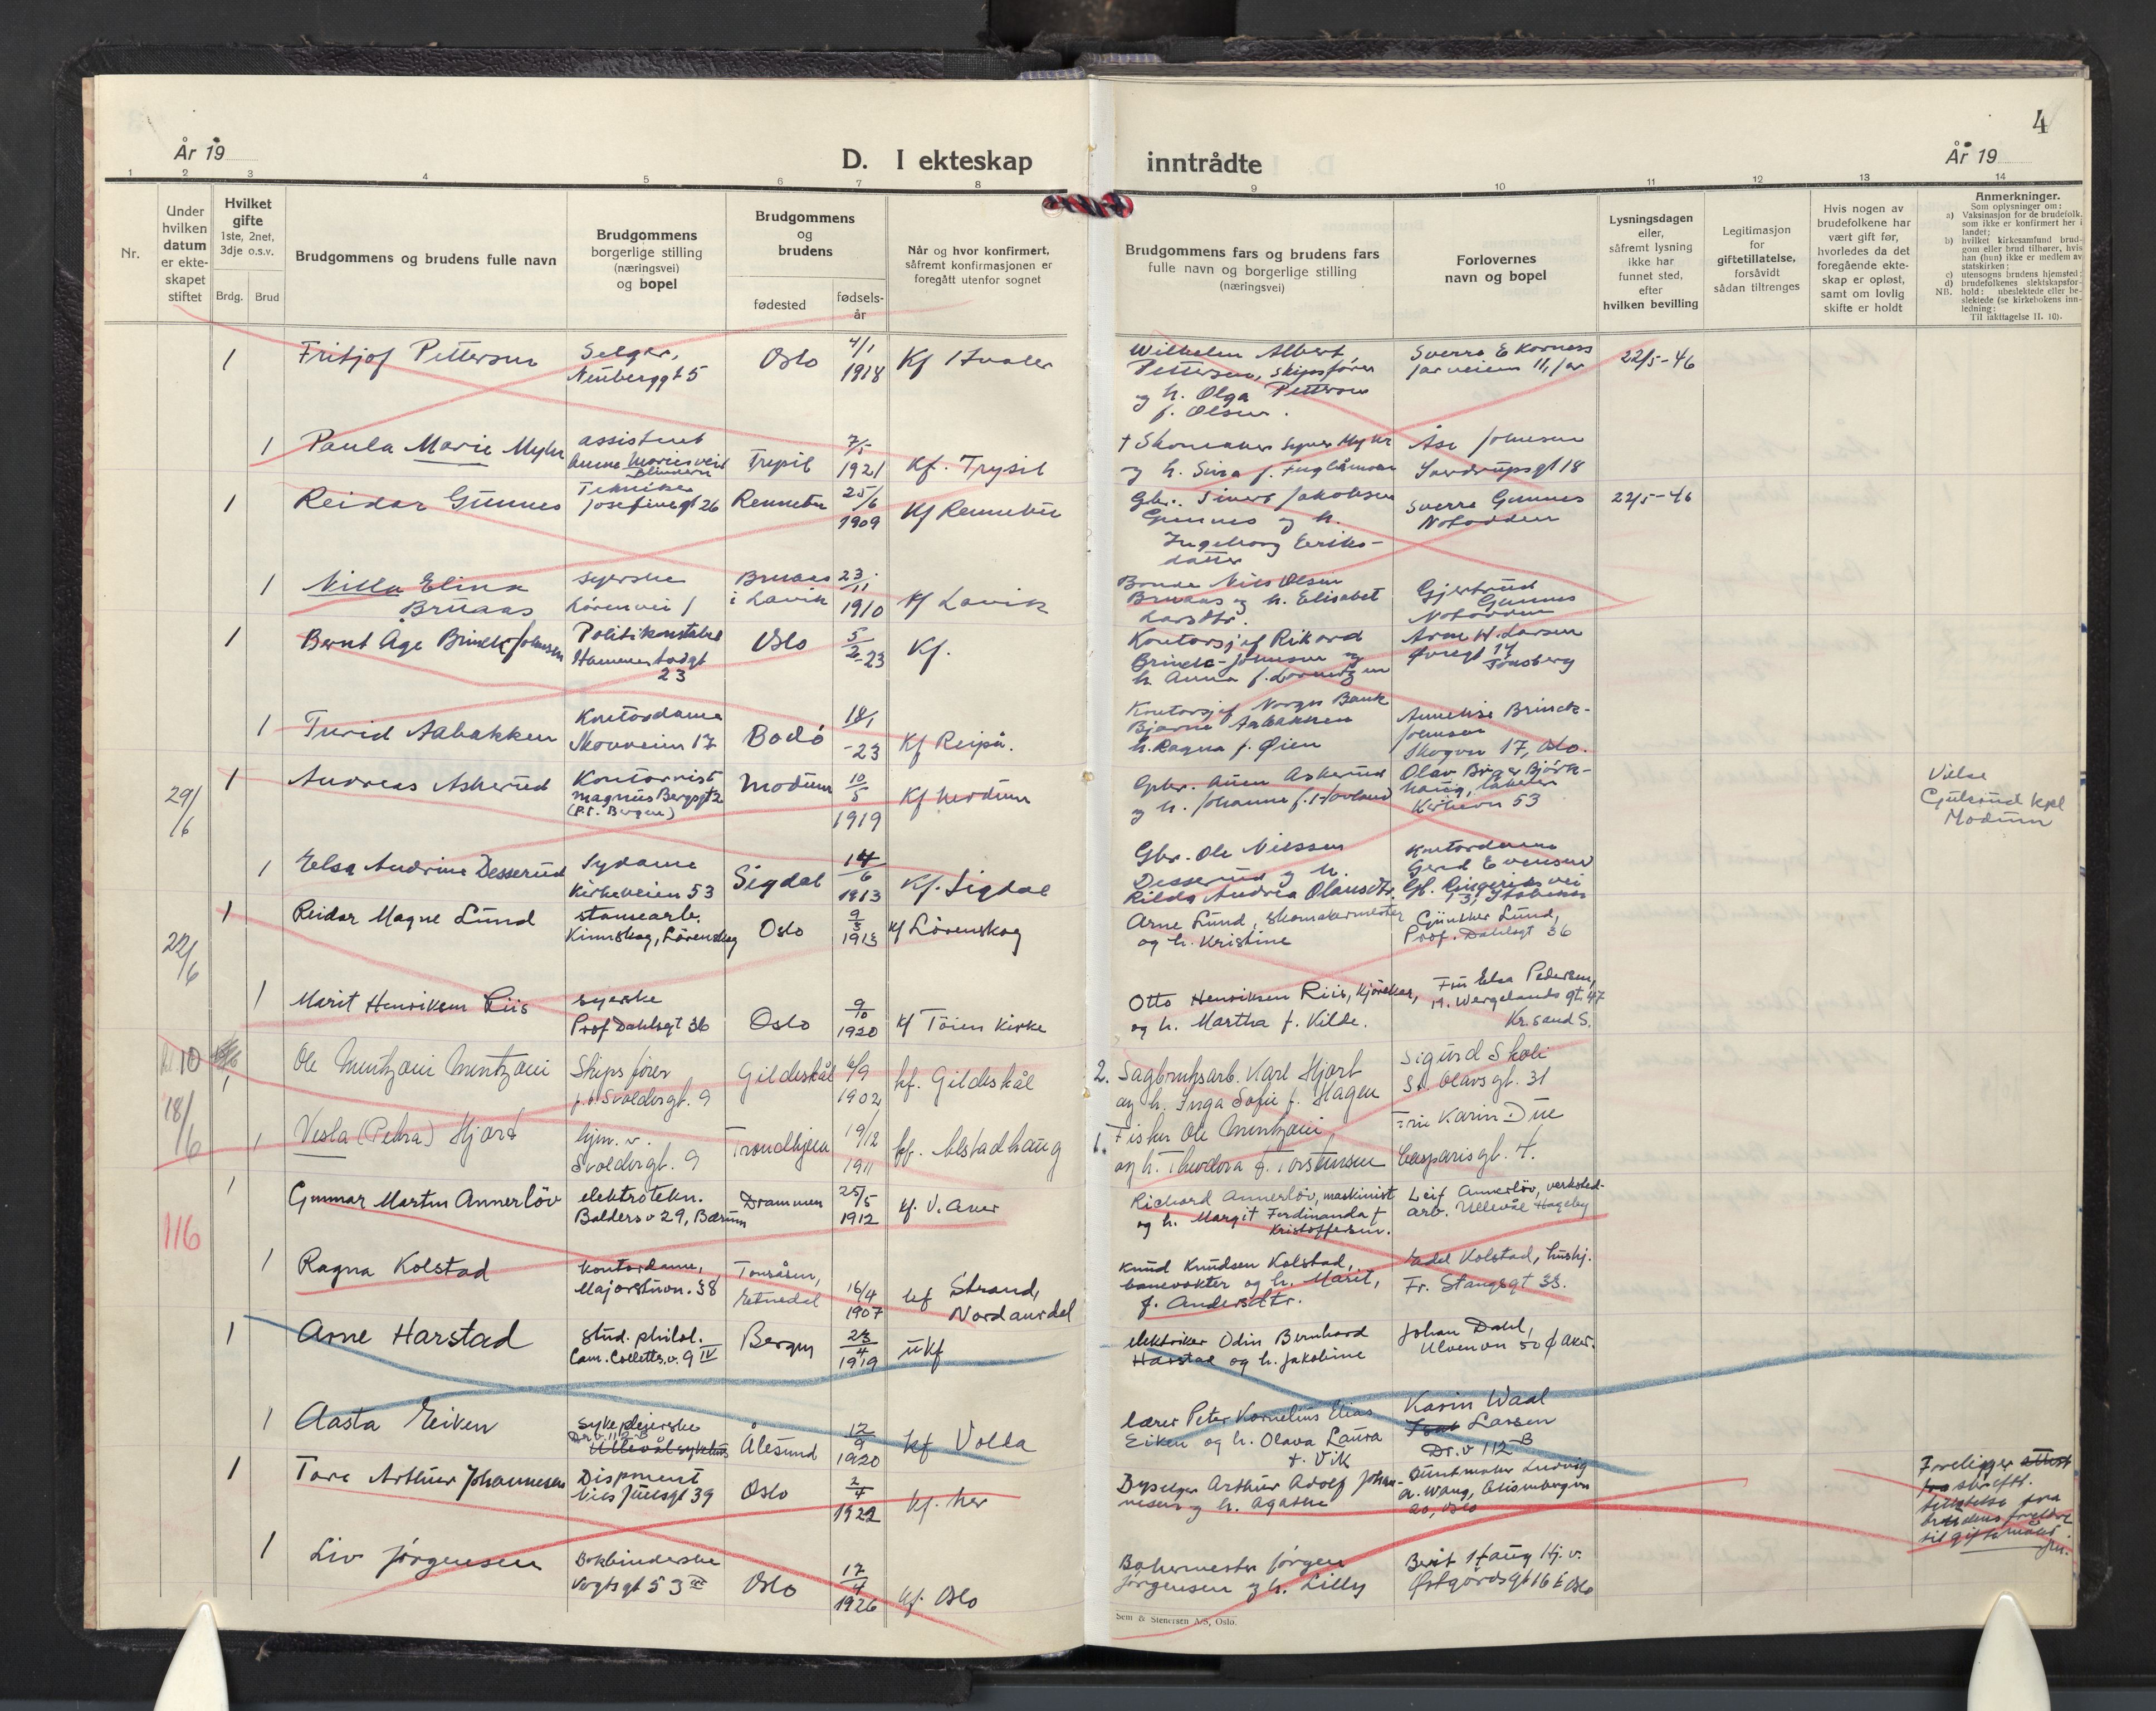 4
År 19
D. I ekteskap
inntrådte
År 19
1 2 3 4 5 6 7 8 9 10 11 12 13 14
Nr.
Under
hvilken
datum
er ekte-
skapet
stiftet
Hvilket
gifte
1ste, 2net,
3dje o.s.v.
Brdg. Brud
Brudgommens og brudens fulle navn
Brudgommens
borgerlige stilling
(næringsvei)
og bopel
Brudgommens
og
brudens
fødested
fødsels-
år
Når og hvor konfirmert,
såfremt konfirmasjonen er
foregått utenfor sognet
Brudgommens fars og brudens fars
fulle navn og borgerlige stilling
(næringsvei)
Forlovernes
navn og bopel
Lysningsdagen
eller,
såfremt lysning
ikke har
funnet sted,
efter
hvilken bevilling
Legitimasjon
for
giftetillatelse,
forsåvidt
sådan tiltrenges
Hvis nogen av
brudefolkene har
vært gift før,
hvorledes da det
foregående ekte-
skap er opløst,
samt om lovlig
skifte er holdt
Anmerkninger.
Som oplysninger om:
a) Vaksinasjon for de brudefolk,
som ikke er konfirmert her i
landet;
b) hvilket kirkesamfund brud-
gom eller brud tilhører, hvis
han (hun) ikke er medlem av
statskirken;
c) utensogns brudens hjemsted;
d) brudefolkenes slektskapsfor-
NB. hold: ubeslektede eller be-
slektede (se kirkebokens inn-
ledning:
Til iakttagelse II. 10).
1
Fritjof Pettersen
Selger,
Neuberggt 5
Oslo
4/1
1918
Kf Hvaler
Wilhelm Albert
Pettersen, skipsfører
og h. Olga Pettersen
f. Olsen.
Sverre E Kornes
Jarveien 11, Jar
22/5-46
1
Paula Marie Myhr
assistent
Anne Maries vei
Blindern
Trysil
1921
Kf. Trysil
† Skomaker Syver Myhr
og h. Sina f.
Åse Johnsen
Sverdrupsgt 18
1
Reidar Gunnes
Tekniker
Josefinegt 26
Rennebu
25/6
1909
Kf Rennebu
Gbr. Sivert Jakobsen
Gunnes og h.
Ingeborg Eriks-
datter
Sverre Gunnes
Notodden
22/5-46
1
Nilla Elina
Bruaas
syerske
Lörenvei 1
Bruaas
i Lavik
23/11
1910
Kf Lavik
Bonde Nils Olsen
Bruaas og h. Elisabet
Larsdtr.
Gjertrud
Gunnes
Notodden
1
Bernt Åge Brinck Johnsen
Politikonstabel
Hammerstadgt
23
Oslo
5/2
-23
Kf.
Kontorsjef Rikard
Brinck-Johnsen og
h. Anna f. Lorentzen
Arne H. Larsen
Øvregt 14
Tønsberg
1
Turid Aabakken
Kontordame
Skovveien 17
Bodö
18/1
-23
Kf Reipå.
Kontorsjef Norges Bank
Bjarne Aabakken
h. Ragna f. Øien
Annelise Brinck-
Johnsen
Skogvn 17, Oslo.
29/6
1
Andreas Askerud
Kontorist
Magnus Bergsgt 2
(p.t. Bergen)
Modum
10/5
1919
Kf Modum
Gbr. Auen Askerud
og h. Johanne f. Hovland
Olav Birger Bjørk-
haug, lakerer
Kirkevn 53
Vielse
Gulsrud kpl
Modum
1
Elsa Andrine Desserud
Sydame
Kirkeveien 53
Sigdal
14/6
1913
Kf. Sigdal
Gbr. Ole Nielssen
Desserud og h.
Kilda Andrea Olausdtr.
Kontordame
Gerd Evensen
Gl. Ringeriks vei
73, Stabekk
22/6
1
Reidar Magne Lund
stamearb.
Kinnskog, Lörenskog
Oslo
9/3
1913
Kf Lörenskog
Arne Lund, skomakermester
og h. Kristine
Günther Lund,
Prof. Dahlsgt 36
1
Marit Henriksen Riis
syerske
Prof Dahlsgt 36
Oslo
9/10
1920
Kf Töien kirke
Otto Henriksen Riis, kjørekar,
og h. Martha f. Kilde.
Fru Elsa Pedersen,
H. Wergelands gt. 47
Kr.sand S.
10
18/6
1
Ole Muntzoni Muntzoni
Skipsfører
p.t. Svoldergt. 9
Gildeskål
6/9
1902
kf. Gildeskål
2. Sagbruksarb. Karl Hjort
og h. Inga Sofie f. Hagen
Sigurd Skoli
St. Olavsgt. 31
1
Vesla (Petra) Hjord
hjm. v.
Svoldergt. 9
Trondhjem
19/12
1911
kf. Alstadhaug
1. Fisker Ole Muntzoni
og h. Theodora f. Torstensen
Fru Karin Due
Casparisgt. 4.
116
1
Gunnar Martin Annerlöv
elektrotekn.
Baldersv 29, Bærum
Drammen
25/5
1912
kf. V. Aker
Richard Annerlöv, maskinist
og h. Margit Ferdinanda f
Kristoffersen.
Leif Annerlöv, verksted-
arb. Ullevål Hageby
1
Ragna Kolstad
Kontordame,
Majorstuvn. 38
Tonsåsen,
Etnedal
16/4
1907
kf Strand,
Nordaurdal
Knud Knudsen Kolstad,
banevokter og h. Marit,
f. Andersdtr.
Edel Kolstad, hushj.
Fr. Stangsgt 33.
1
Arne Harstad
Stud. philol.
Cam. Colletts v. 9 IV
Bergen
23/4
1919
ukf
elektriker Odin Bernhard
Harstad og h. Jakobine
Johan Dahl,
Ulvenvn 50 Ø Aker.
1
Aasta Eiken
Sykepleierske
Dr. v. 112 B
Ullevål sykehus
Ålesund
12/9
1920
kf Volda
lærer Peter Kornelius Elias
Eiken og h. Olava Laura
f. Vik
Karin Waal
Larsen
Dr. v 112 B
1
Tore Arthur Johannesen
Disponent
Niels Juelsgt 39
Oslo
2/4
1922
kf. her
Arthur Adolf Johan-
nesen og h. Agathe
Kunstmaler Ludvig
A. Wang,
20, Oslo
Foreligger attest
fra skriftl.
tillatelse fra
brudens foreldre
til giftermålet.
1
Liv Jørgensen
Bokbinderske
Vogtsgt 53 III
Oslo
17/4
1926
kf. Oslo
Bakermester Jørgen
Jørgensen og h. Lilly
Berit Haug Hj. v.
Østgårdsgt 16 E Oslo
Sem & Stenersen A/S, Oslo.